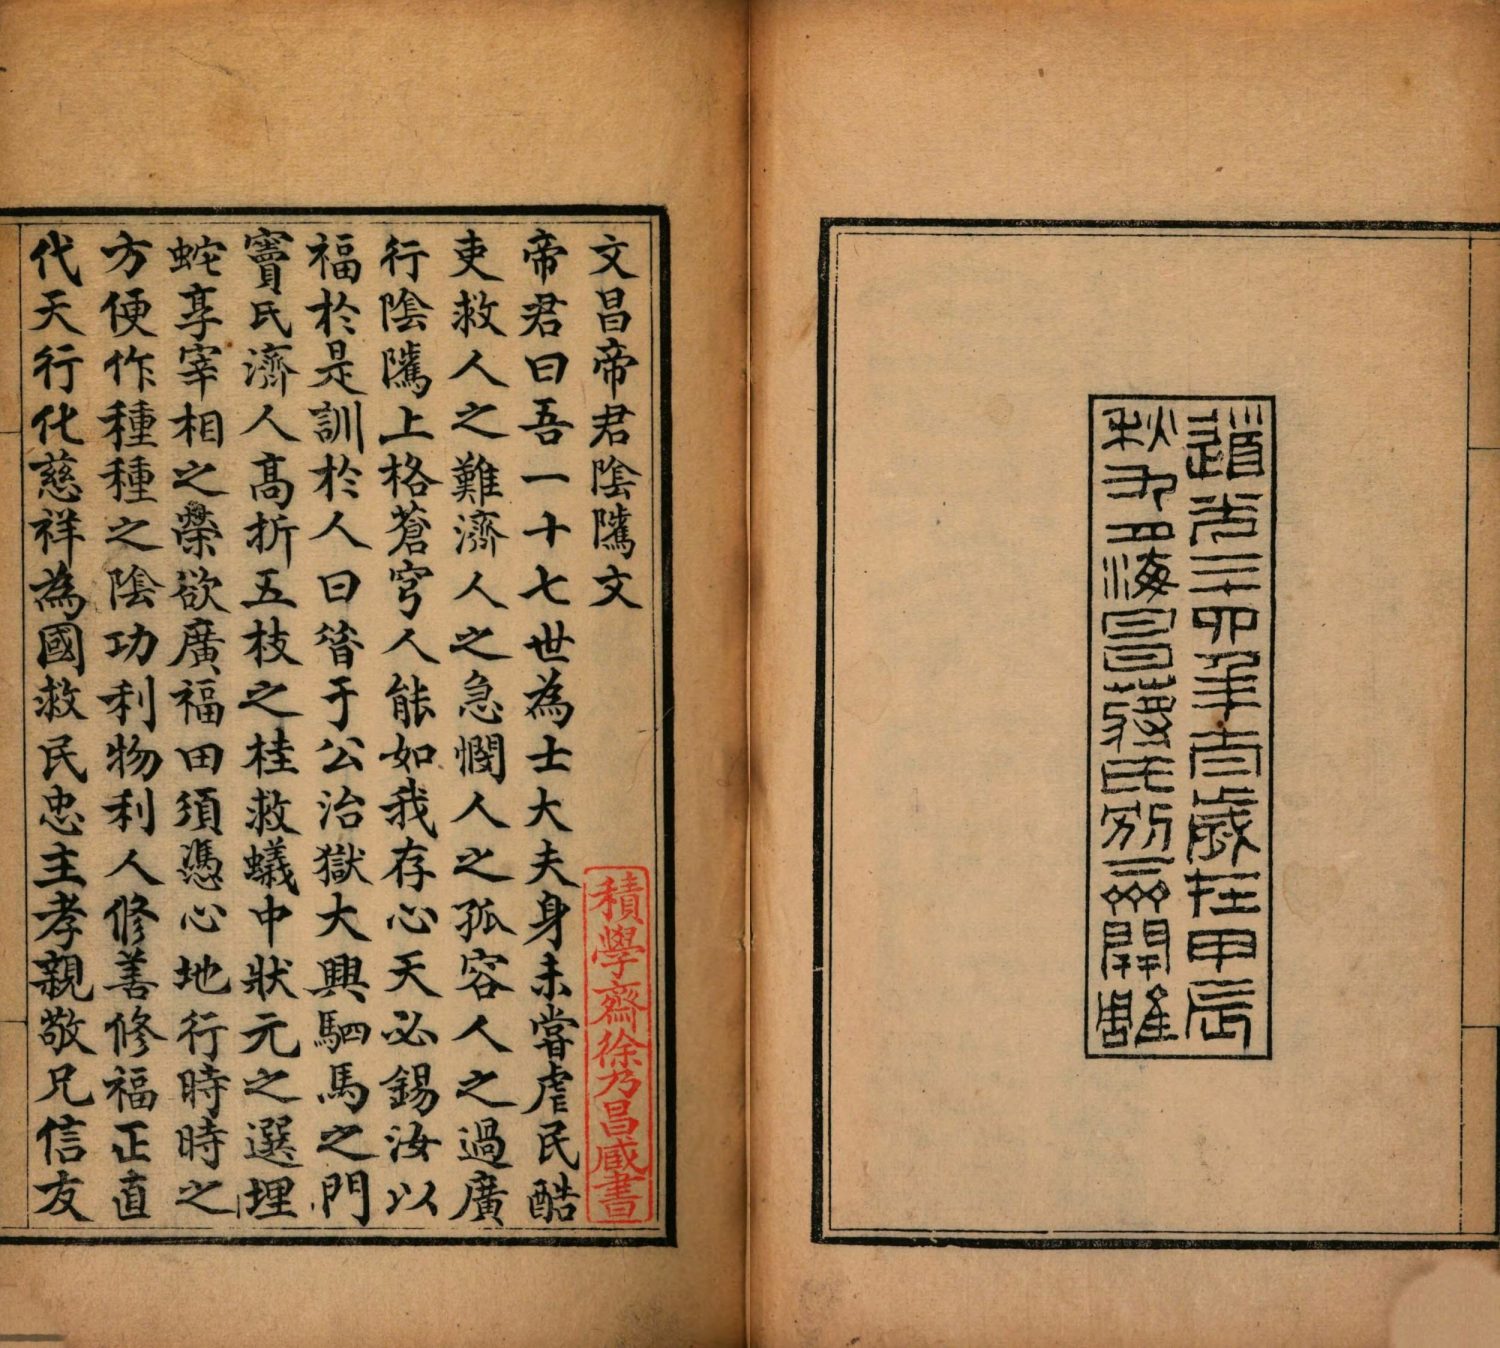 道光二十四年太歲在甲辰
秋九月海昌蔣氏別下齋開雕
文昌帝君陰隲文
積學齋徐乃昌臧書
帝君曰吾一十七世為士大夫身未嘗虐民酷
吏救人之難濟人之急憫人之孤容人之過廣
行陰隲上格蒼穹人能如我存心天必錫汝以
福於是訓於人曰昝于公治獄大興駟馬之門
竇氏濟人高折五枝之桂救蟻中狀元之選埋
蛇享宰相之榮欲廣福田須憑心地行時時之
方便作種種之陰功利物利人修善修福正直
代天行化慈祥為國救民忠主孝親敬兄信友